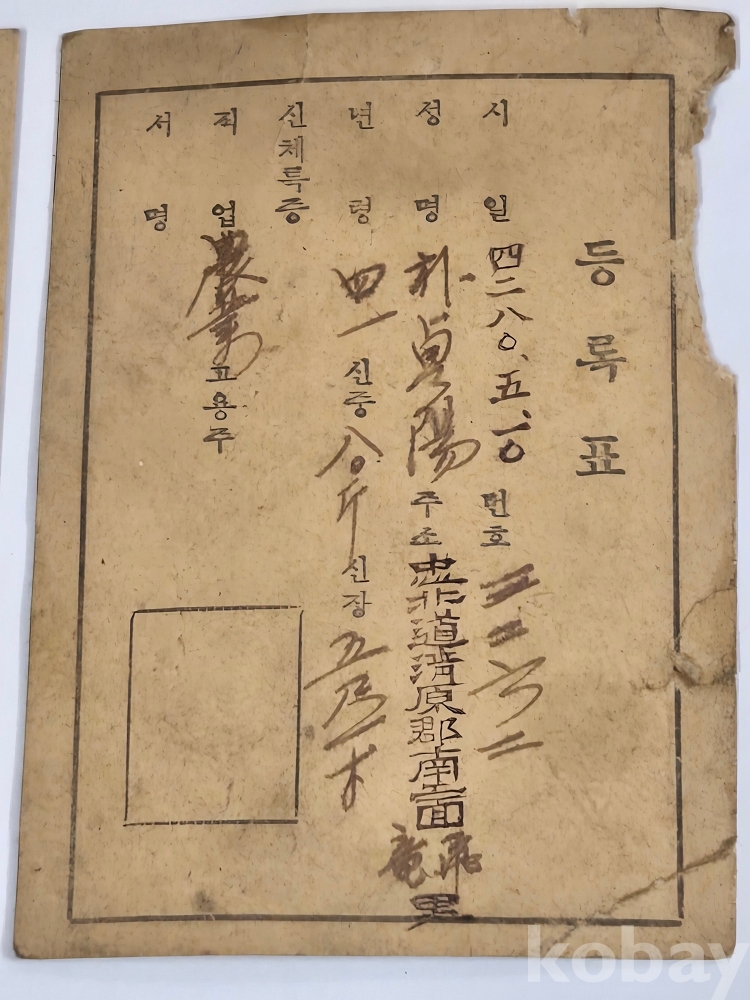 등록표
시일 四二八〇.五.一〇 번호
성명 朴貞陽 주소 忠北道清原郡南面 里
년령 四一 신중 八〇斤 신장 五尺一寸
신체특증
직업 農業 고용주
서명
kobay